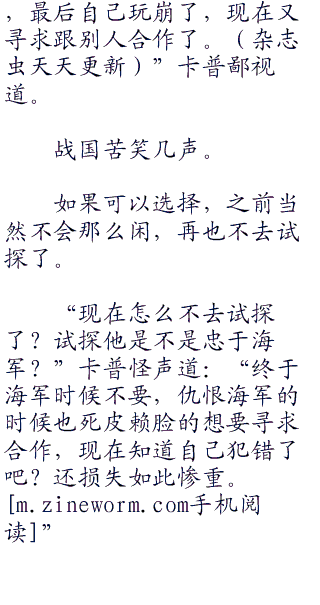 ，最后自己玩崩了，现在又
寻求跟别人合作了。（杂志
虫天天更新）”卡普鄙视
道。
战国苦笑几声。
如果可以选择，之前当
然不会那么闲，再也不去试
探了。
“现在怎么不去试探
了？试探他是不是忠于海
军？”卡普怪声道：“终于
海军时候不要，仇恨海军的
时候也死皮赖脸的想要寻求
合作，现在知道自己犯错了
吧？还损失如此惨重。
[m.zineworm.com手机阅
读]”